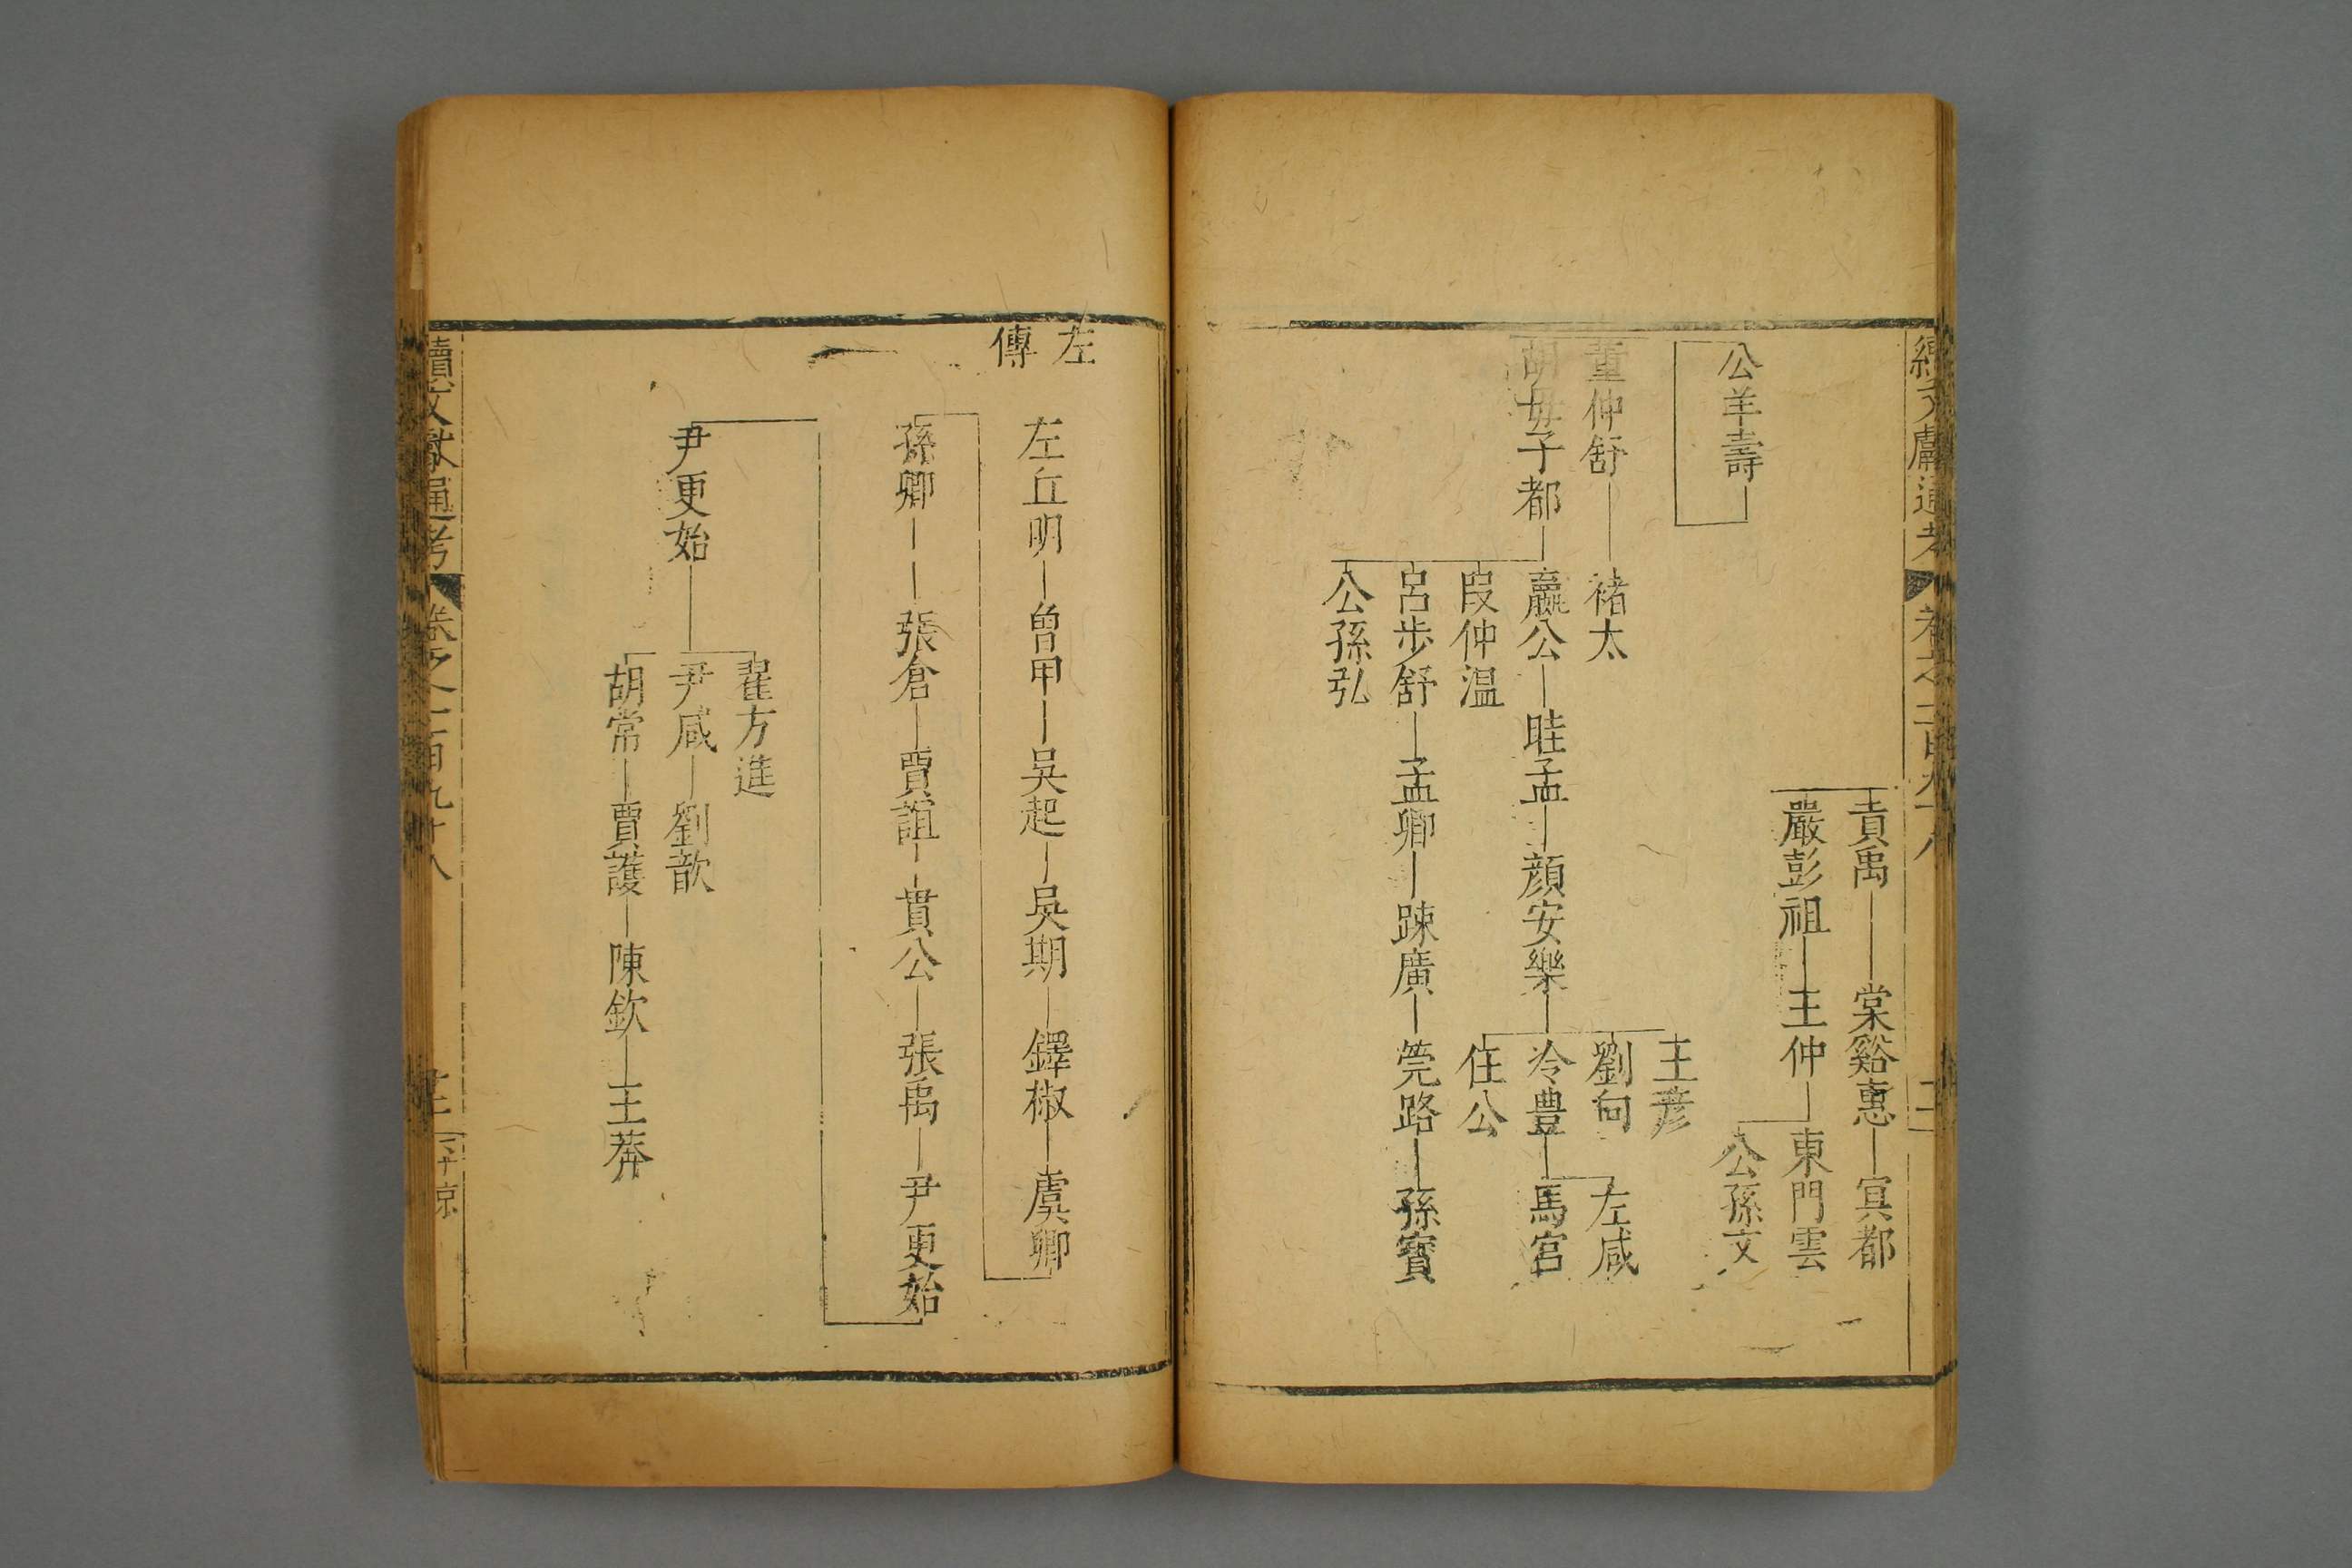 續文獻通考
卷之一百九十八
貢禹 棠谿惠 㝠都
嚴彭祖 王仲 東門雲
公孫文
公羊壽
王彥
董仲舒 褚太
劉向 左咸
胡毋子都 嬴公 眭孟 顔安樂 冷豊 馬宮
段仲溫 任公
呂步舒 孟卿 踈廣 筦路 孫寶
公孫弘
左
傳
左丘明 曾甲 吳起 吳期 鐸椒 虞卿
孫卿 張倉 賈誼 貫公 張禹 尹更始
翟方進
尹更始 尹咸 劉歆
胡常 賈護 陳欽 王莽
續文獻通考
卷之一百九十八